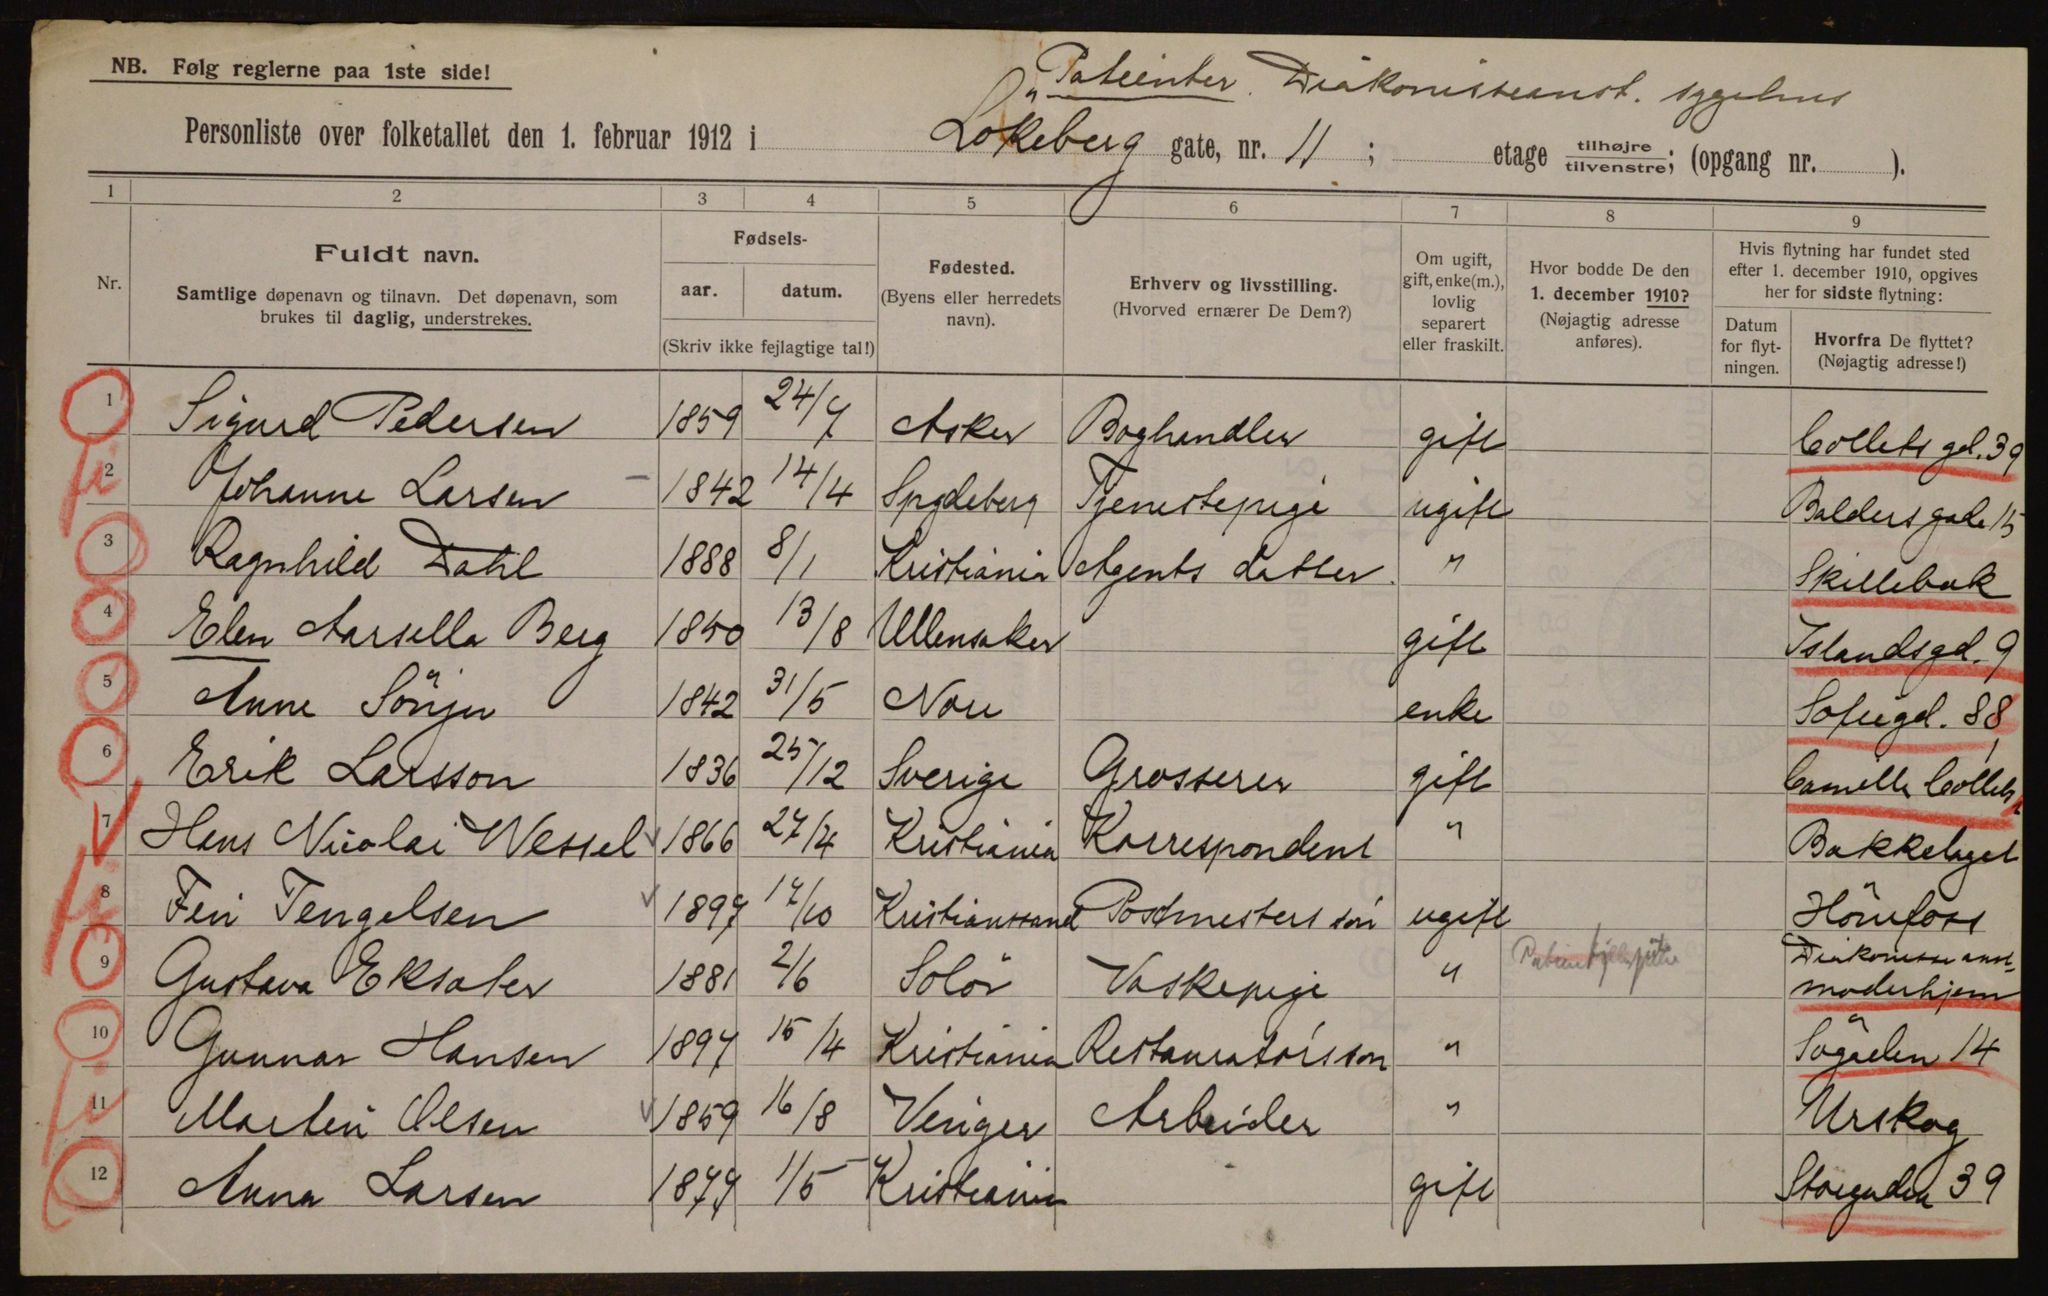 NB. Følg reglerne paa 1ste side!
Patienter. Diakonisseanst. sygehus
Personliste over folketallet den 1. februar 1912 i Løkeberg gate, nr. 11 ; etage tilhøjre / tilvenstre; (opgang nr. ).
1 2 3 4 5 6 7 8 9
Nr.
Fuldt navn.
Samtlige døpenavn og tilnavn. Det døpenavn, som
brukes til daglig, understrekes.
Fødsels-
aar. datum.
(Skriv ikke fejlagtige tal!)
Fødested.
(Byens eller herredets
navn).
Erhverv og livsstilling.
(Hvorved ernærer De Dem?)
Om ugift,
gift, enke(m.),
lovlig
separert
eller fraskilt.
Hvor bodde De den
1. december 1910?
(Nøjagtig adresse
anføres).
Hvis flytning har fundet sted
efter 1. december 1910, opgives
her for sidste flytning:
Datum
for flyt-
ningen.
Hvorfra De flyttet?
(Nøjagtig adresse!)
1 Sigurd Pedersen 1859 24/7 Asker Boghandler gift Collets gd. 39
2 Johanne Larsen 1842 14/4 Spydeberg Tjenestepige ugift Baldersgade 15
3 Ragnhild Dahl 1888 8/1 Kristiania Agents datter. " Skillebæk
4 Elen Marsella Berg 1850 13/8 Ullensaker gift Islandsgd. 9
5 Anne 1842 31/5 Nore enke Sofiegd. 88
6 Erik Larsson 1836 25/12 Sverige Grosserer gift Camilla Collets
7 Hans Nicolai Wessel 1866 27/4 Kristiania Korrespondent " Bækkelaget
8 Tengelsen 1897 17/10 Kristianssand Postmesters søn ugift Hønefoss
9 Gustava Eksæter 1881 2/6 Solør Vaskepige " Diakonisse anst.
moderhjem
10 Gunnar Hansen 1897 15/4 Kristiania Restauratørs søn " Søgaden 14
11 Martin Olsen 1859 16/8 Vinger Arbeider " Urskog
12 Anna Larsen 1877 1/5 Kristiania gift Storgaden 39